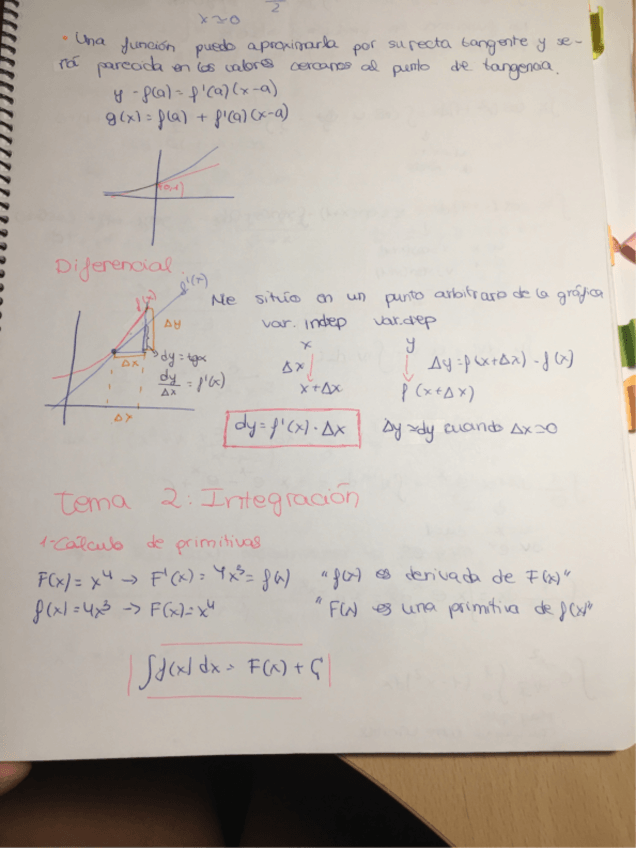 x→0
2
• Una función puedo aproximarla por su recta tangente y se-
rá parecida en los valores cercanos al punto de tangencia.
y - f(a) = f'(a)(x-a)
g(x) = f(a) + f'(a)(x-a)
Diferencial
Me sitúo en un punto arbitraro de la gráfica
var. indep var.dep
x y
Δx Δy = f(x+Δx) - f(x)
x+Δx f(x+Δx)
Δy
Δx
dy = tgα
dy/Δx = f'(x)
Δx
dy = f'(x) · Δx Δy≈dy cuando Δx→0
Tema 2: Integración
1-Cálculo de primitivas
F(x) = x⁴ → F'(x) = 4x³ = f(x) "f(x) es derivada de F(x)"
f(x) = 4x³ → F(x) = x⁴ "F(x) es una primitiva de f(x)"
∫f(x) dx = F(x) + C